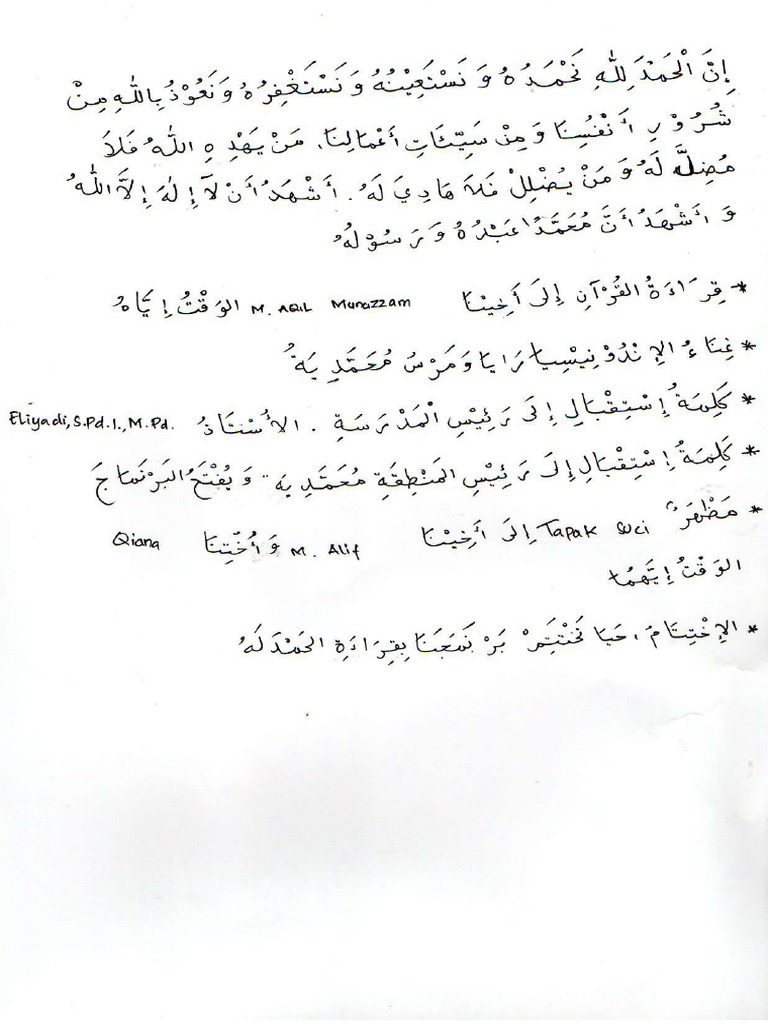 إِنَّ الْحَمْدَ لِلّٰهِ نَحْمَدُهُ وَ نَسْتَعِيْنُهُ وَ نَسْتَغْفِرُهُ وَ نَعُوْذُ بِاللّٰهِ مِنْ
شُرُوْرِ أَنْفُسِنَا وَ مِنْ سَيِّئَاتِ أَعْمَالِنَا، مَنْ يَهْدِهِ اللّٰهُ فَلَا
مُضِلَّ لَهُ وَ مَنْ يُضْلِلْ فَلَا هَادِيَ لَهُ. أَشْهَدُ أَنْ لَآ إِلٰهَ إِلَّا اللّٰهُ
وَ أَشْهَدُ أَنَّ مُحَمَّدًا عَبْدُهُ وَ رَسُوْلُهُ
* قِرَاءَةُ القُرْآنِ إِلَى أَخِيْنَا M. AQIL Munazzam الوَقْتُ إِيَّاهُ
* غِنَاءُ الإِنْدُوْنِيْسِيا رَايَا وَ مَرْسُ مُحَمَّدِيَةُ
* كَلِمَةُ إِسْتِقْبَالِ إِلَى رَئِيْسِ الْمَدْرَسَةِ . الأُسْتَاذُ Eliyadi, S.Pd.I., M.Pd.
* كَلِمَةُ إِسْتِقْبَالِ إِلَى رَئِيْسِ المَنْطِقَةِ مُحَمَّدِيَة وَ يُفْتَحُ البَرْنَمَاجَ
* مَظْهَرٌ Tapak Suci إِلَى أَخِيْنَا M. Alif وَ أُخْتِنَا Qiana
الوَقْتُ إِيَّهُمَا
* الإِخْتِتَامُ، حَيَا نَخْتَتِمْ بَرْنَمَجَنَا بِقِرَاءَةِ الحَمْدَلَهُ